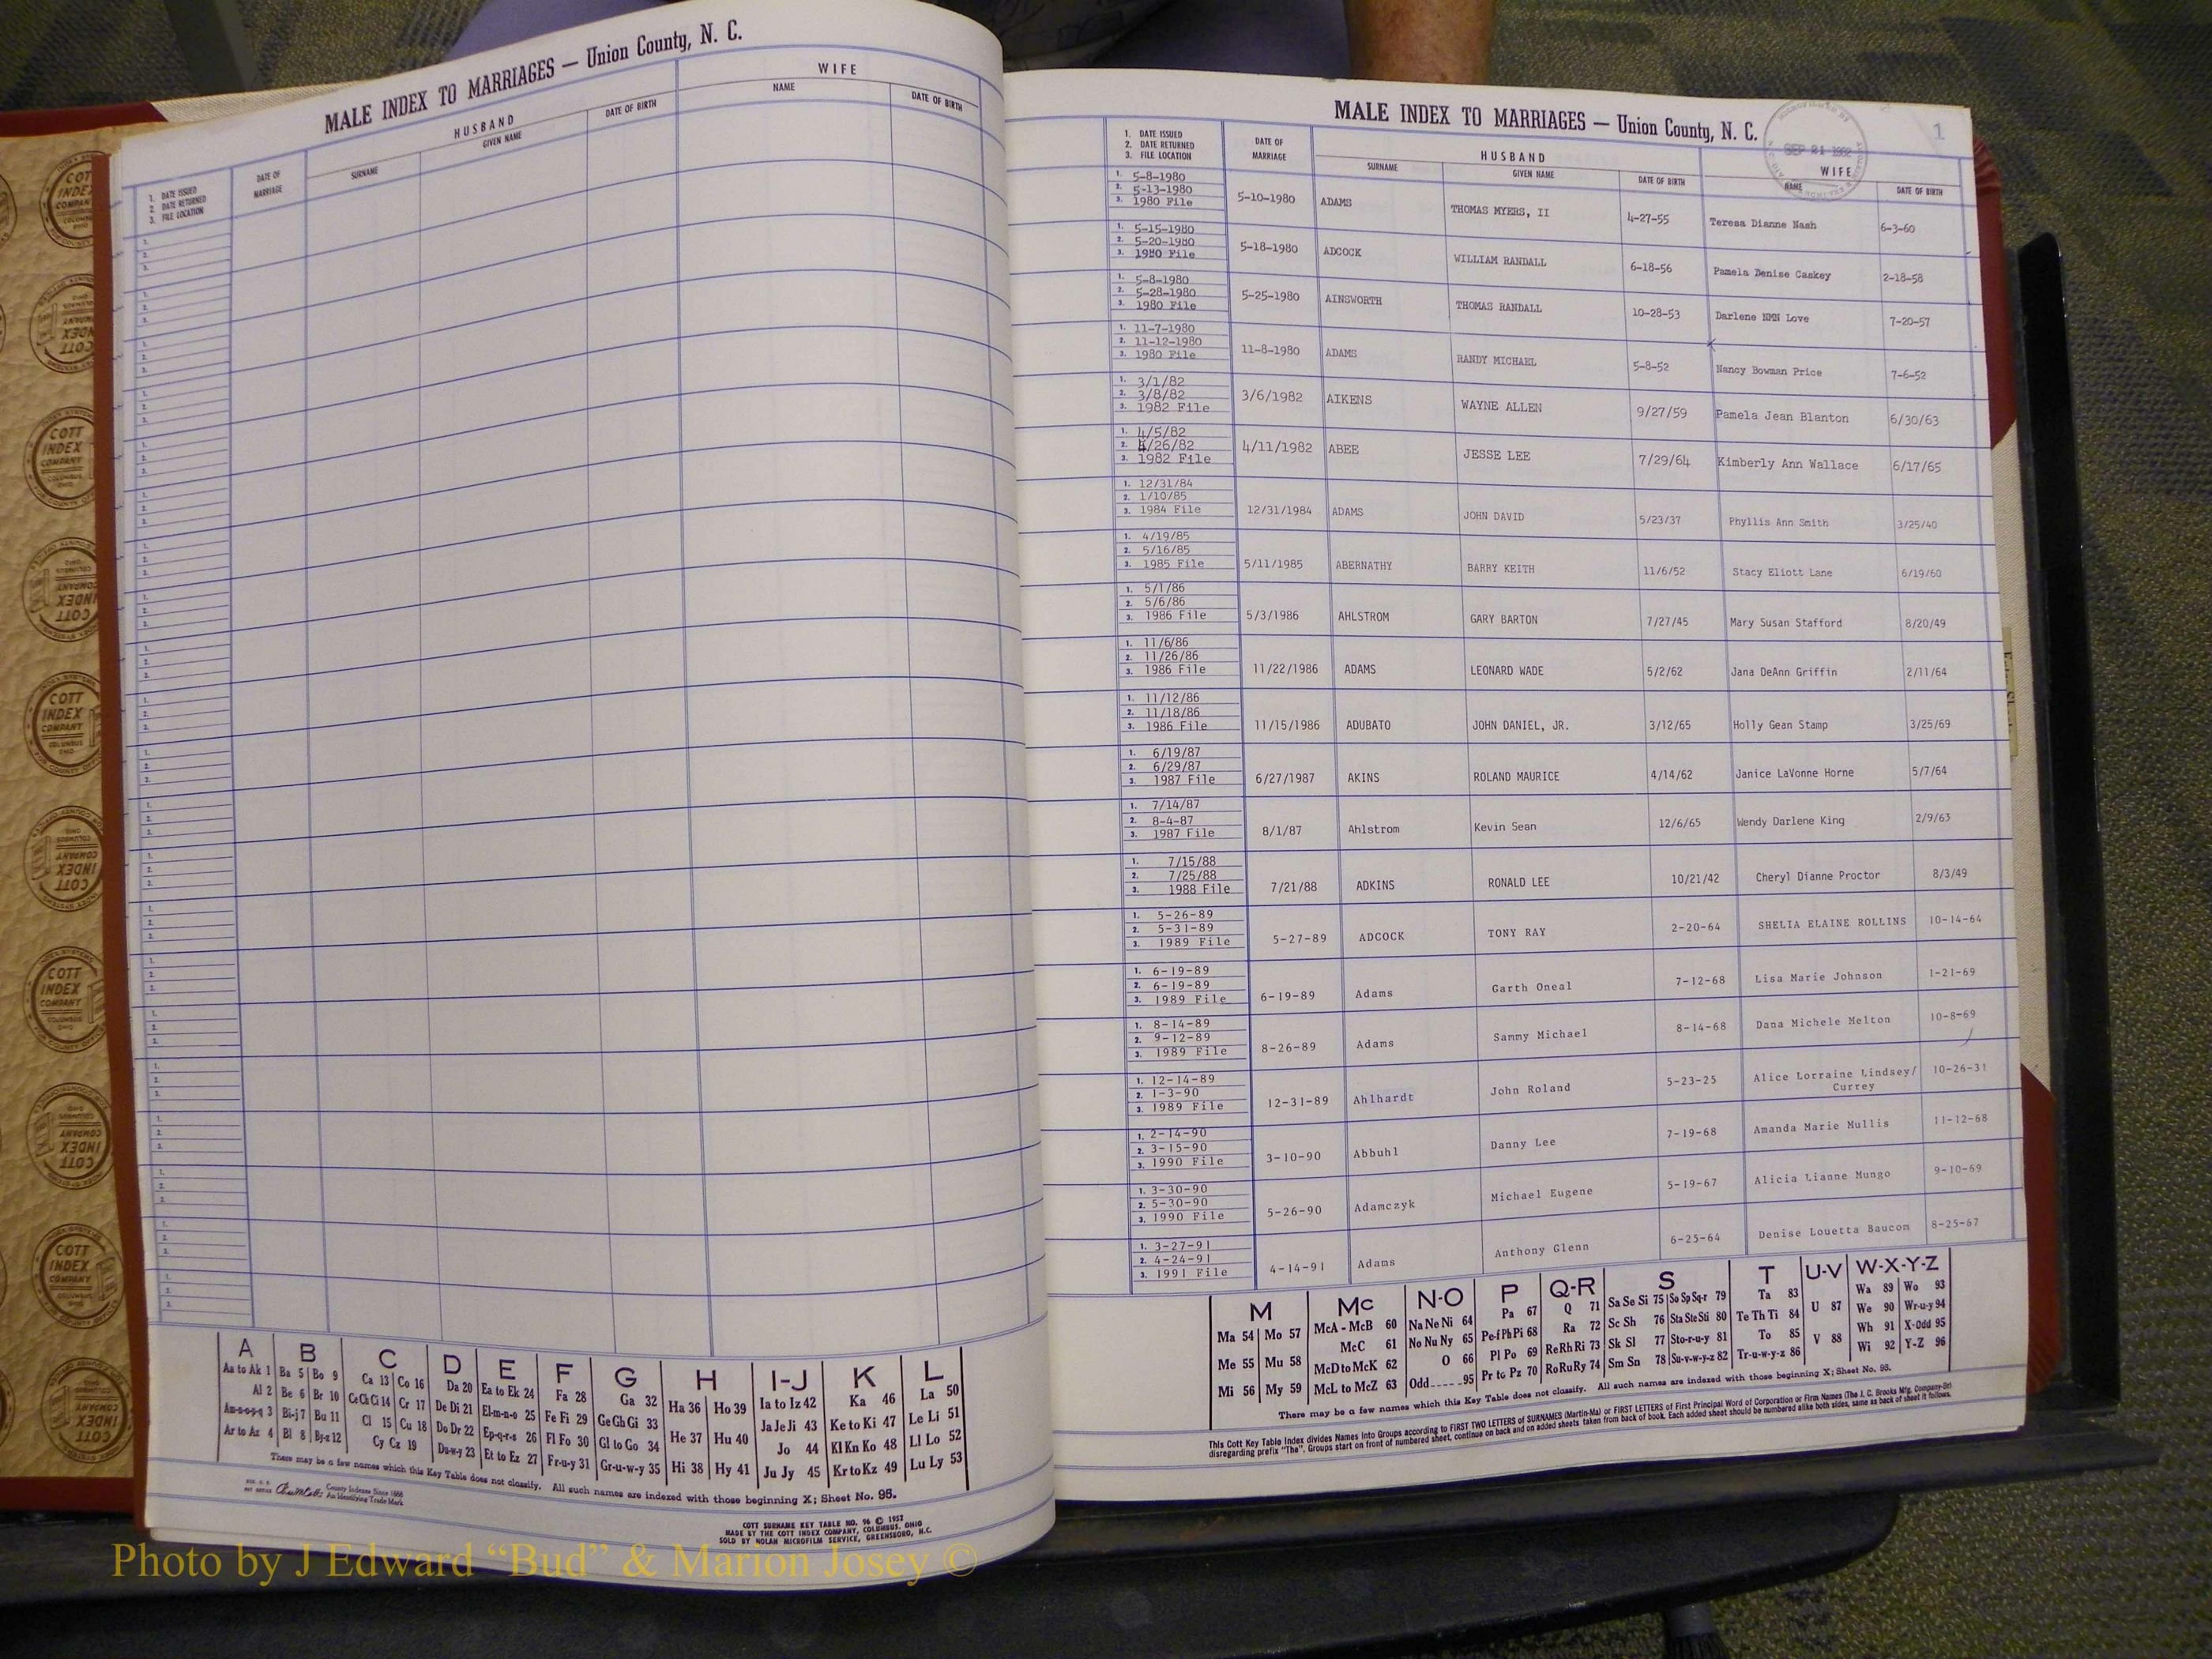 MALE INDEX TO MARRIAGES — Union County, N. C.
HUSBAND
WIFE
1. DATE ISSUED
2. DATE RETURNED
3. FILE LOCATION
DATE OF MARRIAGE
SURNAME
GIVEN NAME
DATE OF BIRTH
NAME
DATE OF BIRTH
A B C D E F G H I-J K L
Aa to Ak 1 Ba 5 Bo 9 Ca 13 Co 16 Da 20 Ea to Ek 24 Fa 28 Ga 32 Ha 36 Ho 39 Ia to Iz 42 Ka 46 La 50
Al 2 Be 6 Br 10 Ce Ch Ci 14 Cr 17 De Di 21 El-m-n-o 25 Fe Fi 29 Ge Gh Gi 33 He 37 Hu 40 Ja Je Ji 43 Ke to Ki 47 Le Li 51
Am-n-o-p-q 3 Bi-j 7 Bu 11 Cl 15 Cu 18 Do Dr 22 Ep-q-r-s 26 Fl Fo 30 Gl to Go 34 Hi 38 Hy 41 Jo 44 Kl Kn Ko 48 Ll Lo 52
Ar to Az 4 Bl 8 By-z 12 Cy Cz 19 Du-w-y 23 Et to Ez 27 Fr-u-y 31 Gr-u-w-y 35 Ju Jy 45 Kr to Kz 49 Lu Ly 53
There may be a few names which this Key Table does not classify. All such names are indexed with those beginning X; Sheet No. 95.
County Indexes Since 1888
An Identifying Trade Mark
COTT SURNAME KEY TABLE NO. 96 © 1957
MADE BY THE COTT INDEX COMPANY, COLUMBUS, OHIO
SOLD BY NOLAN MICROFILM SERVICE, GREENSBORO, N.C.
MALE INDEX TO MARRIAGES — Union County, N. C.
SEP 21 1982
1
1. DATE ISSUED
2. DATE RETURNED
3. FILE LOCATION
DATE OF MARRIAGE
HUSBAND
SURNAME
GIVEN NAME
DATE OF BIRTH
WIFE
NAME
DATE OF BIRTH
1. 5-8-1980
2. 5-13-1980
3. 1980 File
5-10-1980 ADAMS THOMAS MYERS, II 4-27-55 Teresa Dianne Nash 6-3-60
1. 5-15-1980
2. 5-20-1980
3. 1980 File
5-18-1980 ADCOCK WILLIAM RANDALL 6-18-56 Pamela Denise Caskey 2-18-58
1. 5-8-1980
2. 5-28-1980
3. 1980 File
5-25-1980 AINSWORTH THOMAS RANDALL 10-28-53 Darlene NMN Love 7-20-57
1. 11-7-1980
2. 11-12-1980
3. 1980 File
11-8-1980 ADAMS RANDY MICHAEL 5-8-52 Nancy Bowman Price 7-6-52
1. 3/1/82
2. 3/8/82
3. 1982 File
3/6/1982 AIKENS WAYNE ALLEN 9/27/59 Pamela Jean Blanton 6/30/63
1. 4/5/82
2. 4/26/82
3. 1982 File
4/11/1982 ABEE JESSE LEE 7/29/64 Kimberly Ann Wallace 6/17/65
1. 12/31/84
2. 1/10/85
3. 1984 File
12/31/1984 ADAMS JOHN DAVID 5/23/37 Phyllis Ann Smith 3/25/40
1. 4/19/85
2. 5/16/85
3. 1985 File
5/11/1985 ABERNATHY BARRY KEITH 11/6/52 Stacy Eliott Lane 6/19/60
1. 5/1/86
2. 5/6/86
3. 1986 File
5/3/1986 AHLSTROM GARY BARTON 7/27/45 Mary Susan Stafford 8/20/49
1. 11/6/86
2. 11/26/86
3. 1986 File
11/22/1986 ADAMS LEONARD WADE 5/2/62 Jana DeAnn Griffin 2/11/64
1. 11/12/86
2. 11/18/86
3. 1986 File
11/15/1986 ADUBATO JOHN DANIEL, JR. 3/12/65 Holly Gean Stamp 3/25/69
1. 6/19/87
2. 6/29/87
3. 1987 File
6/27/1987 AKINS ROLAND MAURICE 4/14/62 Janice LaVonne Horne 5/7/64
1. 7/14/87
2. 8-4-87
3. 1987 File
8/1/87 Ahlstrom Kevin Sean 12/6/65 Wendy Darlene King 2/9/63
1. 7/15/88
2. 7/25/88
3. 1988 File
7/21/88 ADKINS RONALD LEE 10/21/42 Cheryl Dianne Proctor 8/3/49
1. 5-26-89
2. 5-31-89
3. 1989 File
5-27-89 ADCOCK TONY RAY 2-20-64 SHELIA ELAINE ROLLINS 10-14-64
1. 6-19-89
2. 6-19-89
3. 1989 File
6-19-89 Adams Garth Oneal 7-12-68 Lisa Marie Johnson 1-21-69
1. 8-14-89
2. 9-12-89
3. 1989 File
8-26-89 Adams Sammy Michael 8-14-68 Dana Michele Melton 10-8-69
1. 12-14-89
2. 1-3-90
3. 1989 File
12-31-89 Ahlhardt John Roland 5-23-25 Alice Lorraine Lindsey/ Currey 10-26-31
1. 2-14-90
2. 3-15-90
3. 1990 File
3-10-90 Abbuhl Danny Lee 7-19-68 Amanda Marie Mullis 11-12-68
1. 3-30-90
2. 5-30-90
3. 1990 File
5-26-90 Adamczyk Michael Eugene 5-19-67 Alicia Lianne Mungo 9-10-69
1. 3-27-91
2. 4-24-91
3. 1991 File
4-14-91 Adams Anthony Glenn 6-25-64 Denise Louetta Baucom 8-25-67
M Mc N-O P Q-R S T U-V W-X-Y-Z
Ma 54 Mo 57 McA - McB 60 Na Ne Ni 64 Pa 67 Q 71 Sa Se Si 75 So Sp Sq-r 79 Ta 83 U 87 Wa 89 Wo 93
Me 55 Mu 58 McC 61 No Nu Ny 65 Pe-f Ph Pi 68 Ra 72 Sc Sh 76 Sta Ste Sti 80 Te Th Ti 84 V 88 We 90 Wr-u-y 94
Mi 56 My 59 McD to McK 62 O 66 Pl Po 69 Re Rh Ri 73 Sk Sl 77 Sto-r-u-y 81 To 85 Wh 91 X-Odd 95
McL to McZ 63 Odd 95 Pr to Pz 70 Ro Ru Ry 74 Sm Sn 78 Su-v-w-y-z 82 Tr-u-w-y-z 86 Wi 92 Y-Z 96
There may be a few names which this Key Table does not classify. All such names are indexed with those beginning X; Sheet No. 95.
This Cott Key Table Index divides Names into Groups according to FIRST TWO LETTERS of SURNAMES (Martin-Ma) or FIRST LETTERS of First Principal Word of Corporation or Firm Names (The J. C. Brooks Mfg. Company-Br)
disregarding prefix "The". Groups start on front of numbered sheet, continue on back and on added sheets taken from back of book. Each added sheet should be numbered alike both sides, same as back of sheet it follows.
COTT INDEX COMPANY COLUMBUS OHIO
Photo by J Edward “Bud” & Marion Josey ©